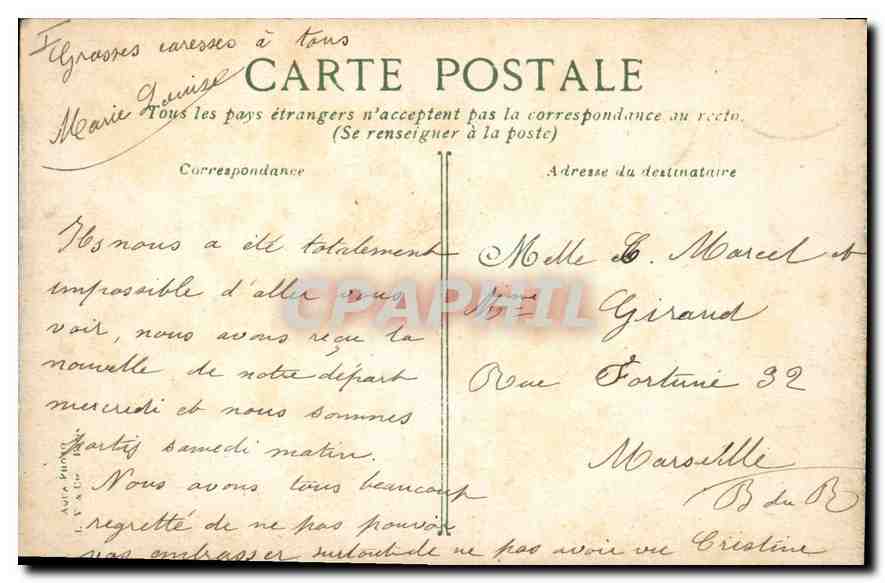 Grosses caresses à tous
Marie Louise
CARTE POSTALE
Tous les pays étrangers n'acceptent pas la correspondance au recto.
(Se renseigner à la poste)
Correspondance
Il nous a été totalement
impossible d'aller vous
voir, nous avons reçu la
nouvelle de notre départ
mercredi et nous sommes
partis samedi matin.
Nous avons tous beaucoup
regretté de ne pas pouvoir
vos embrasser surtout de ne pas avoir vu Cristine
Adresse du destinataire
Melle E. Marcel et
Mme Giraud
Rue Fortuné 32
Marseille
B du R
CPAPHIL
AQUA PHOTO